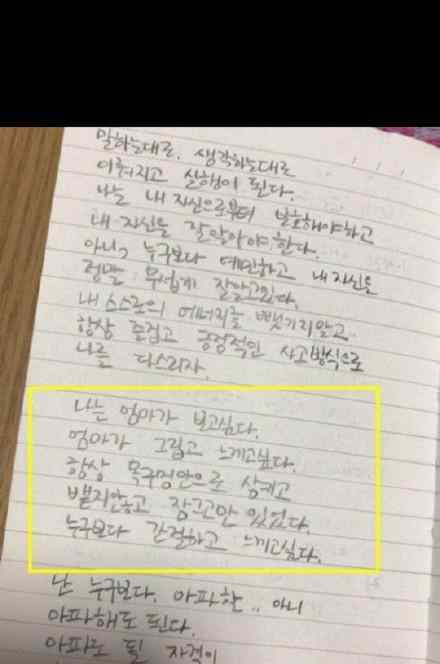 말하는대로. 생각하는대로
이뤄지고 실행이 된다.
나는 내 자신으로부터 발호해야하고
내 자신을 잘알아야한다.
아니, 누구보다 예민하고 내자신을
정말 무섭게 잘알고있다.
내 스스로의 에너지를 뺏기지않고
항상 즐겁고 긍정적인 사고방식으로
나를 다스리자.
나는 엄마가 보고싶다.
엄마가 그립고 느끼고싶다.
항상 목구멍안으로 삼키고
뱉지안고 잠그고만 있었다.
누구보다 간절하고 느끼고싶다.
난 누구보다. 아파한.. 아니
아파해도 된다.
아파도 될 자격이